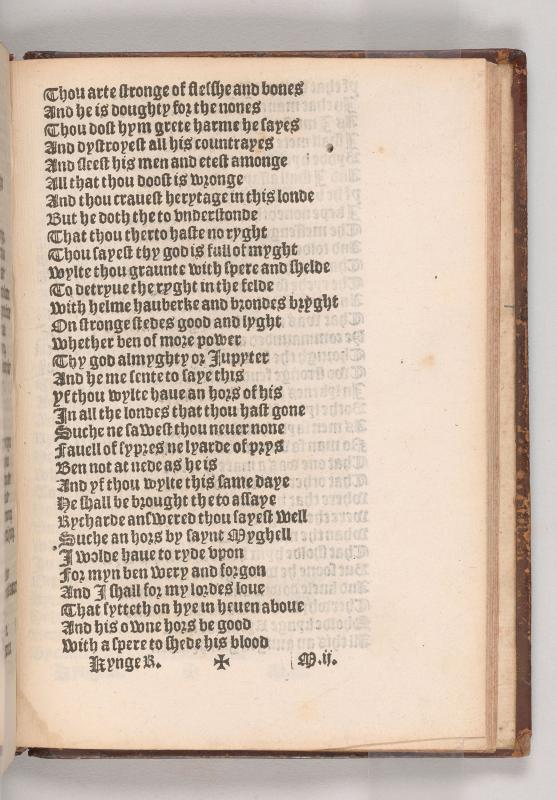 Thou arte stronge of flesshe and bones
And he is doughty for the nones
Thou dost hym grete harme he sayes
And dystroyest all his countrayes
And sleest his men and etest amonge
All that thou doost is wronge
And thou crauest herytage in this londe
But he doth the to vnderstonde
That thou therto haste no ryght
Thou sayest thy god is full of myght
wylte thou graunte with spere and shelde
To detryue the ryght in the felde
with helme hauberke and brondes bryght
On stronge stedes good and lyght
whether ben of more power
Thy god almyghty or Jupyter
And he me sente to saye this
yf thou wylte haue an hors of his
In all the londes that thou hast gone
Suche ne sawest thou neuer none
Fauell of sypres ne lyarde of prys
Ben not at nede as he is
And yf thou wylte this same daye
He shall be brought the to assaye
Rycharde answered thou sayest well
Suche an hors by saynt Myghell
I wolde haue to ryde vpon
For myn ben wery and forgon
And I shall for my lordes loue
That sytteth on hye in heuen aboue
And his owne hors be good
with a spere to shede his blood
Kynge R. ✠ M.ij.